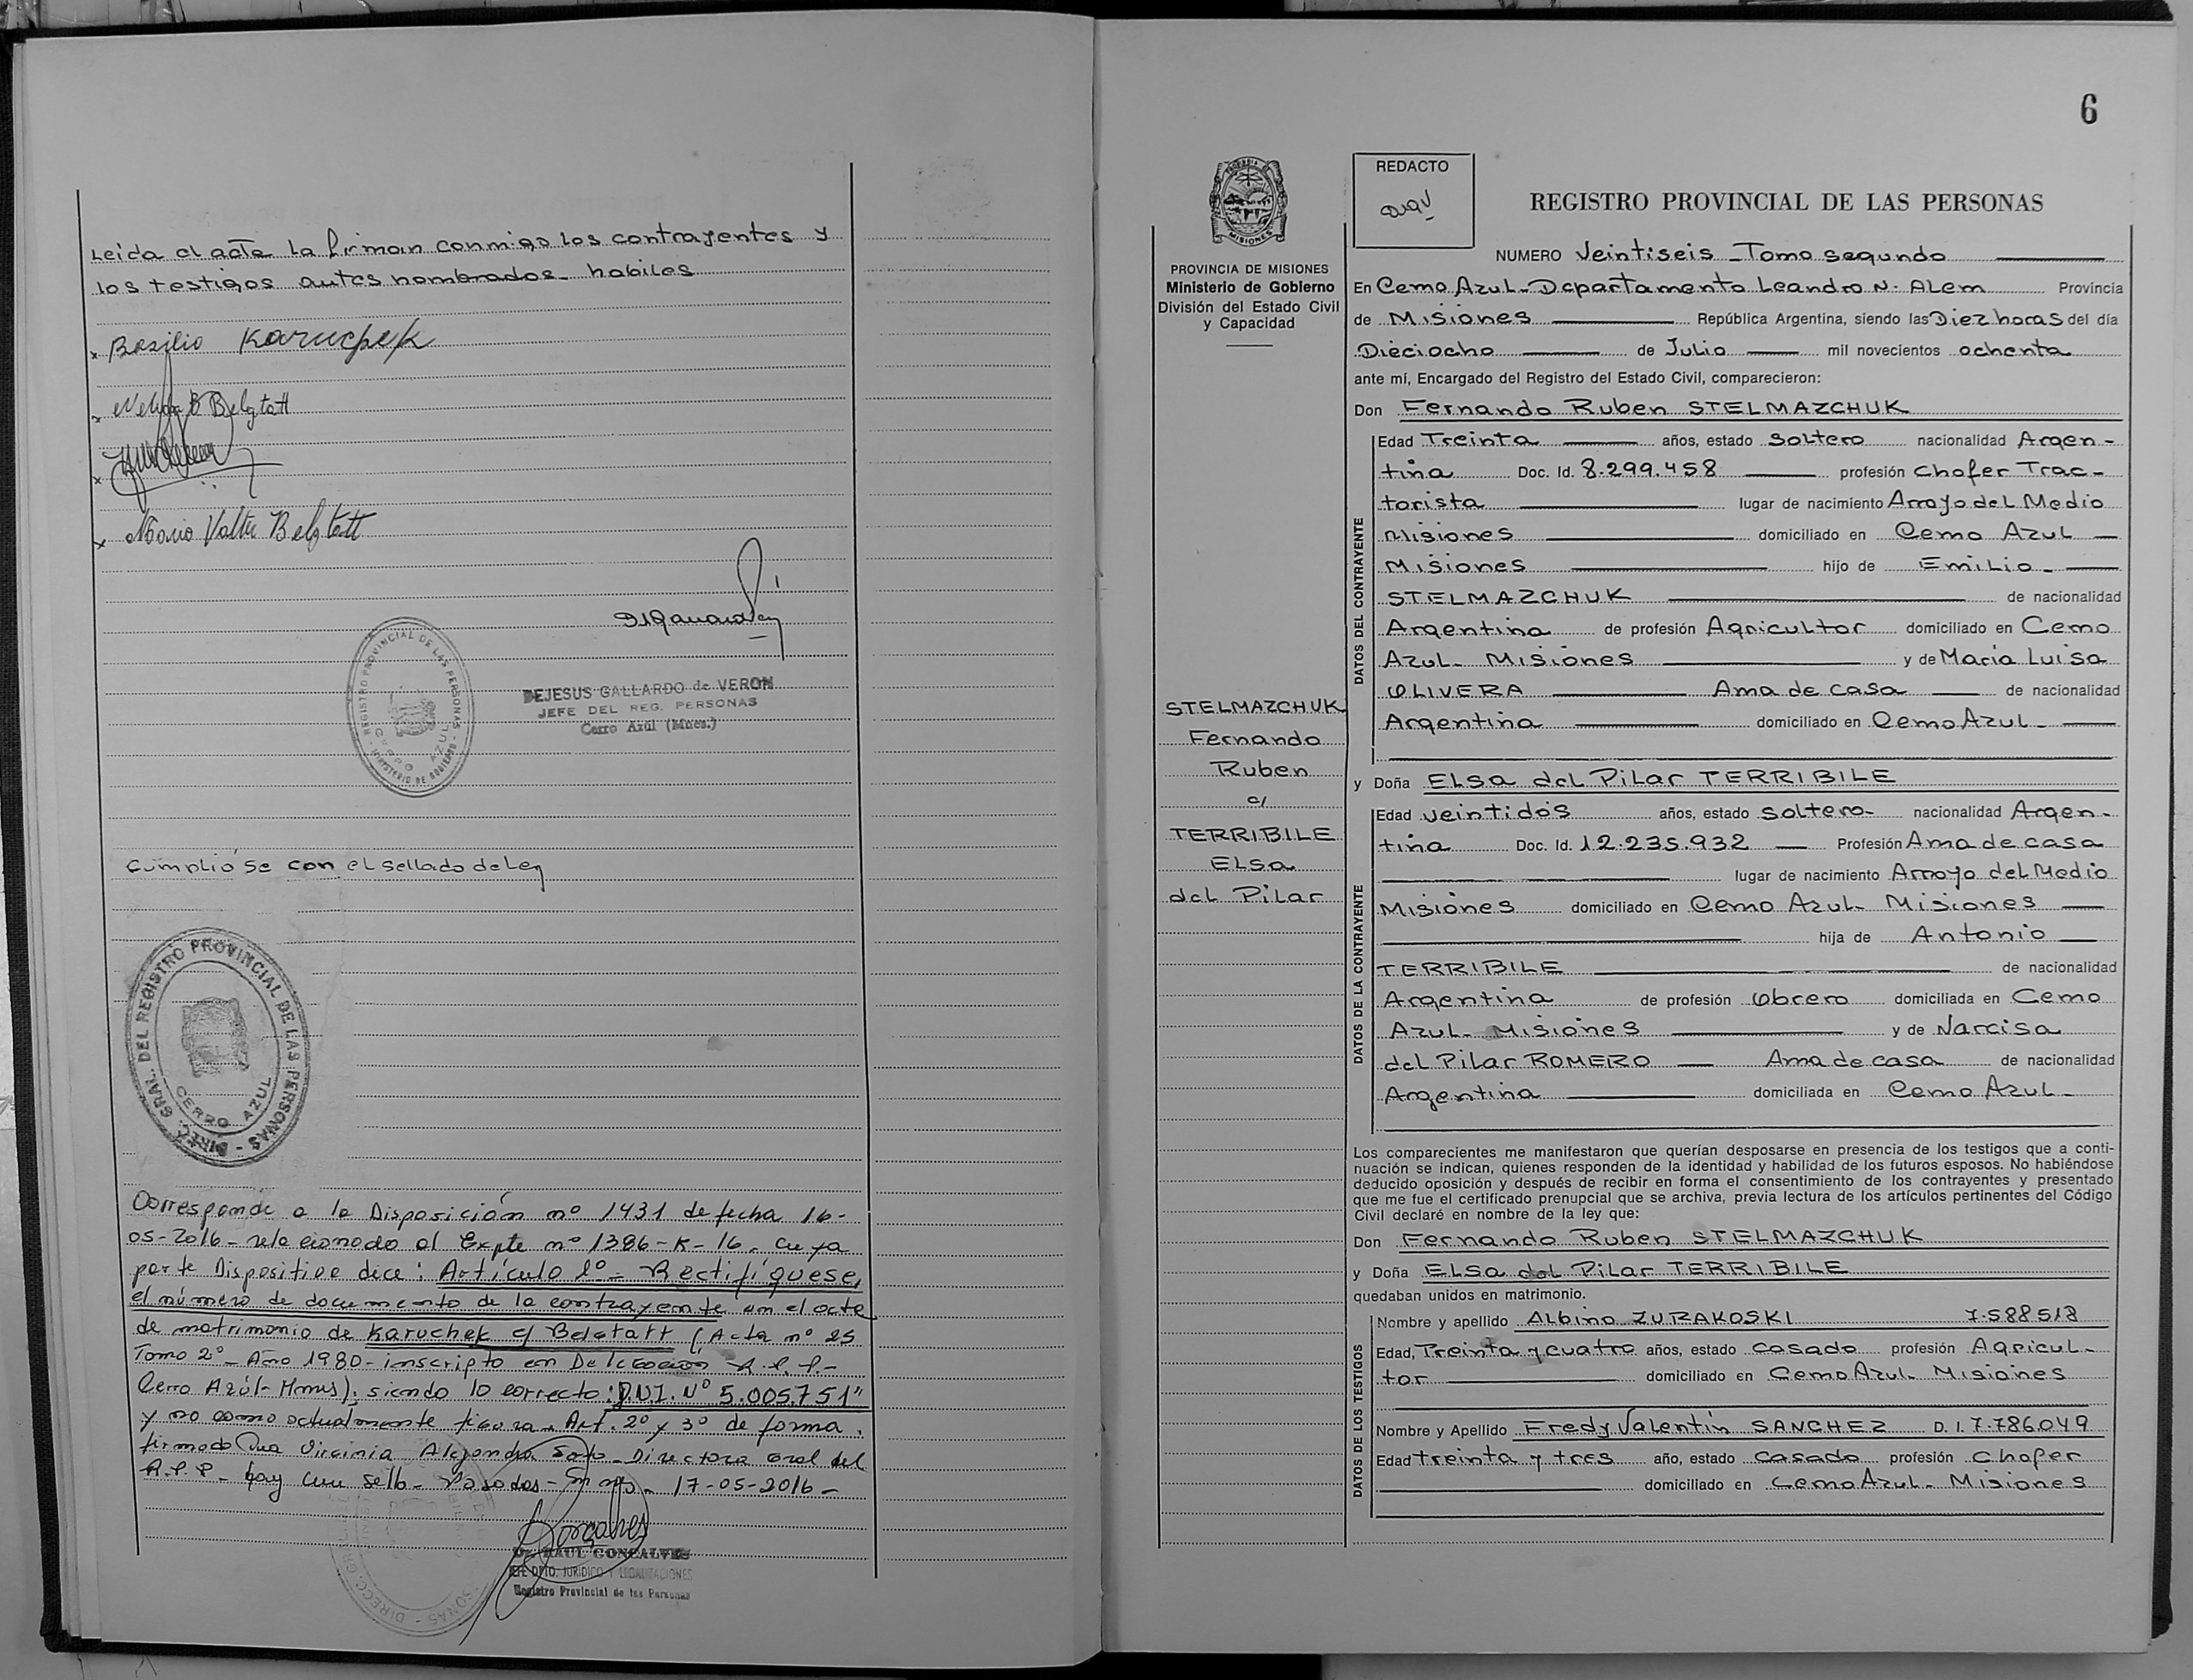 Leida el acta la firman conmigo los contrayentes y
los testigos antes nombrados - habiles
x Basilio Karuchek
x Nelida B Belgtatt
x
x Mario Valter Belgtatt
REGISTRO PROVINCIAL DE LAS PERSONAS - MINISTERIO DE GOBIERNO -
CERRO AZUL
DEJESUS GALLARDO de VERON
JEFE DEL REG. PERSONAS
Cerro Azúl (Mnes.)
Cumplióse con el sellado de Ley
DIREC. GRAL. DEL REGISTRO PROVINCIAL DE LAS PERSONAS -
CERRO AZUL
Corresponde a la Disposición nº 1431 de fecha 16-
05-2016 - relacionado al Expte nº 1386-K-16. cuya
parte Dispositiva dice: Artículo 1º - Rectifíquese,
el número de documento de la contrayente en el acta
de matrimonio de Karuchek c/ Belgtatt (Acta nº 25
Tomo 2º - Año 1980 - inscripto en Delegación R.P.P.-
Cerro Azúl - Mnes); siendo lo correcto: "D.N.I. Nº 5.005.751"
y no como actualmente figura. Art. 2º y 3º de forma.
firmado Dra Virginia Alejandra Soto - Directora Gral del
R.P.P. - hay un sello - Posadas - 17-05-2016 -
Dr. RAUL GONCALVES
JEFE DPTO. JURIDICO Y LEGALIZACIONES
Registro Provincial de las Personas
6
PROVINCIA DE MISIONES
Ministerio de Gobierno
División del Estado Civil
y Capacidad
STELMAZCHUK
Fernando
Ruben
c/
TERRIBILE
ELsa
del Pilar
REDACTO
REGISTRO PROVINCIAL DE LAS PERSONAS
NUMERO Veintiseis - Tomo segundo
En Cerro Azul - Departamento Leandro N. ALem Provincia
de Misiones República Argentina, siendo las Diez horas del día
Dieciocho de Julio mil novecientos ochenta
ante mí, Encargado del Registro del Estado Civil, comparecieron:
Don Fernando Ruben STELMAZCHUK
DATOS DEL CONTRAYENTE
Edad Treinta años, estado soltero nacionalidad Argen-
tina Doc. Id. 8.299.458 profesión Chofer Trac-
torista lugar de nacimiento Arroyo del Medio
Misiones domiciliado en Cerro Azul
Misiones hijo de Emilio -
STELMAZCHUK de nacionalidad
Argentina de profesión Agricultor domiciliado en Cerro
Azul - Misiones y de Maria Luisa
OLIVERA Ama de casa de nacionalidad
Argentina domiciliado en Cerro Azul -
y Doña ELsa del Pilar TERRIBILE
DATOS DE LA CONTRAYENTE
Edad veintidós años, estado soltero - nacionalidad Argen-
tina Doc. Id. 12.235.932 Profesión Ama de casa
lugar de nacimiento Arroyo del Medio
Misiones domiciliado en Cerro Azul - Misiones
hija de Antonio
TERRIBILE de nacionalidad
Argentina de profesión Obrero domiciliada en Cerro
Azul - Misiones y de Narcisa
del Pilar ROMERO Ama de casa de nacionalidad
Argentina domiciliada en Cerro Azul -
Los comparecientes me manifestaron que querían desposarse en presencia de los testigos que a conti-
nuación se indican, quienes responden de la identidad y habilidad de los futuros esposos. No habiéndose
deducido oposición y después de recibir en forma el consentimiento de los contrayentes y presentado
que me fue el certificado prenupcial que se archiva, previa lectura de los artículos pertinentes del Código
Civil declaré en nombre de la ley que:
Don Fernando Ruben STELMAZCHUK
y Doña ELsa del Pilar TERRIBILE
quedaban unidos en matrimonio.
DATOS DE LOS TESTIGOS
Nombre y apellido Albino ZURAKOSKI 7.588.518
Edad, Treinta y cuatro años, estado Casado profesión Agricul-
tor domiciliado en Cerro Azul - Misiones
Nombre y Apellido Fredy Valentín SANCHEZ D.I. 7.786.049
Edad treinta y tres año, estado Casado profesión Chofer
domiciliado en Cerro Azul - Misiones